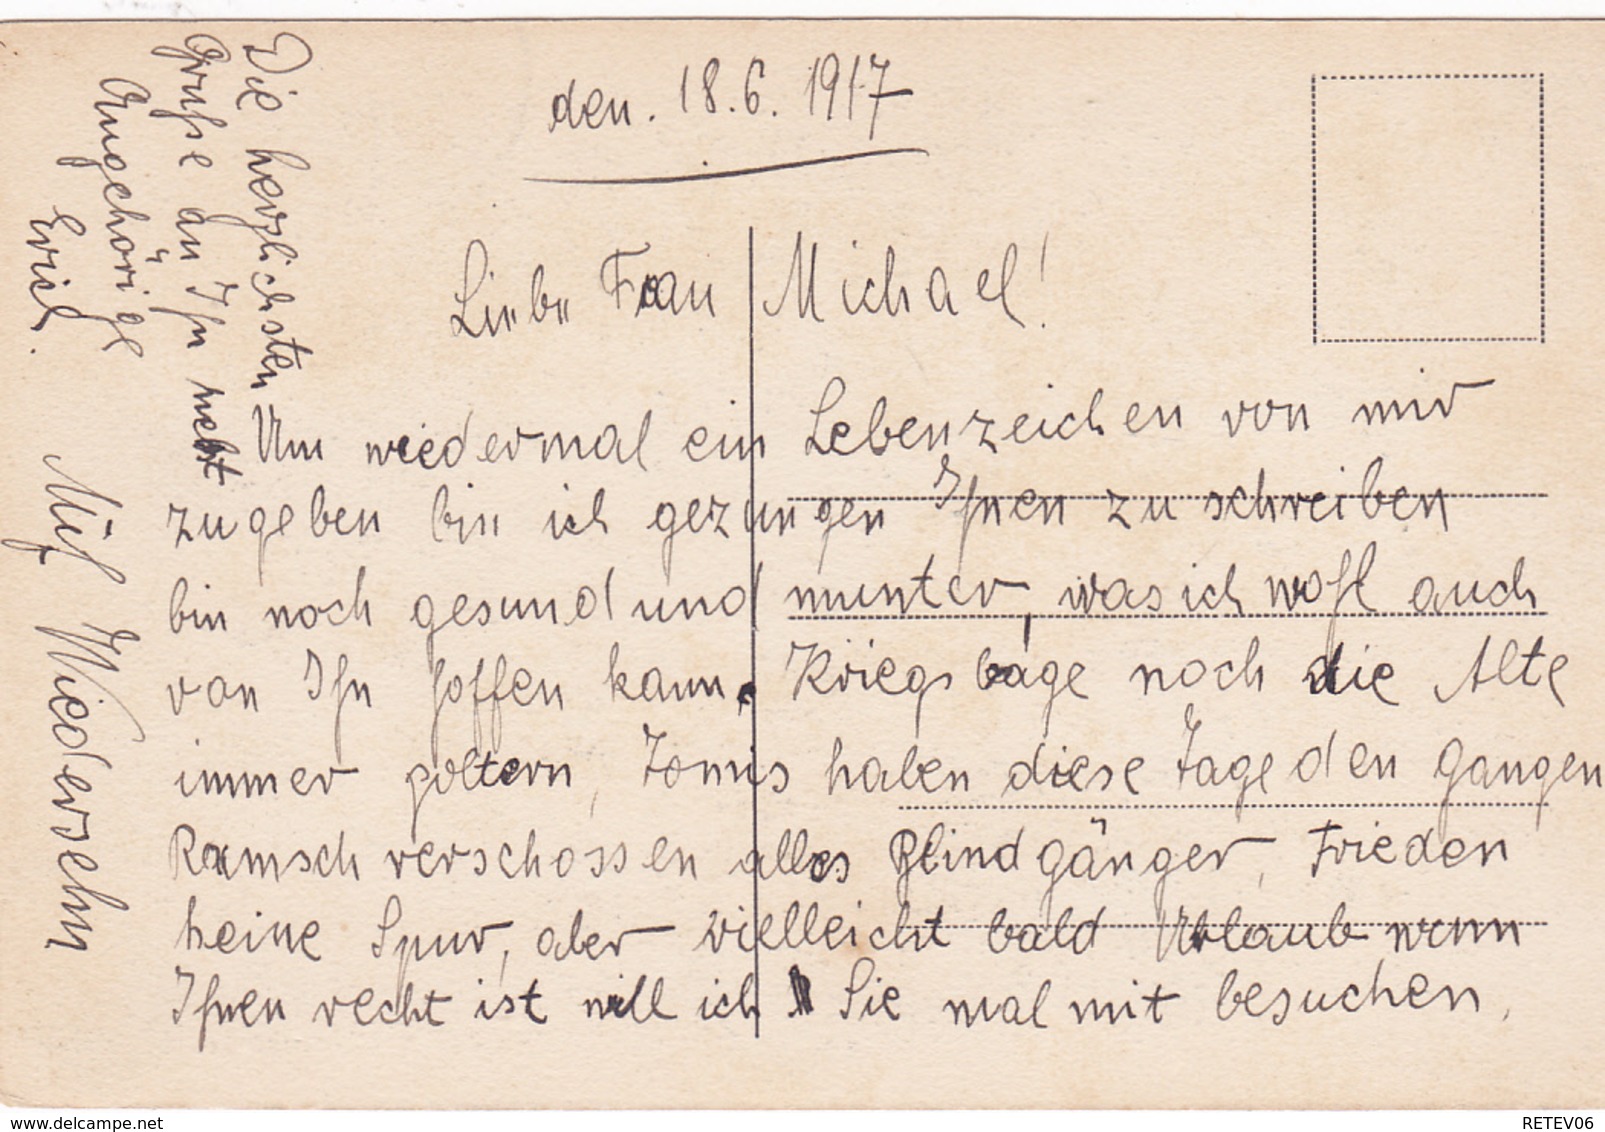 den. 18.6.1917
Liebe Frau Michael!
Um wiedermal ein Lebenzeichen von mir
zugeben bin ich gezungen Ihnen zu schreiben
bin noch gesund und munter, was ich wohl auch
von Ihn hoffen kann. Kriegslage noch die Alte
immer poltern, Tomis haben diese Tage den gangen
Ramsch verschossen alles Blindgänger, Frieden
keine Spur, aber vielleicht bald Urlaub, wenn
Ihnen recht ist will ich Sie mal mit besuchen.
Die herzlichsten
Gruße an Ihn nebst
Angehörige
Erich.
Auf Wiedersehn
delcampe.net
RETEV06